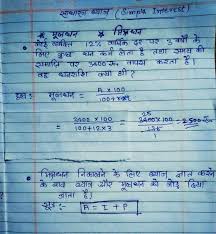 साधारण ब्याज (Simple Interest)
* मूलधन * मिश्रधन
कोई व्यक्ति 12% वार्षिक दर पर 3 वर्षों के
लिए कुछ धन कर्ज लेता है तथा समय की
समाप्ति पर 3400रू० वापस करता है।
वह धनराशि क्या थी?
हल: मूलधन = A × 100
100+
= 3400 × 100
100+12×3
= 3400×100
136
25
1
= 2500
मिश्रधन निकालने के लिए ब्याज ज्ञात करने
के बाद ब्याज और मूलधन को जोड़ दिया
जाता है।
सूत्र:- A = I + P